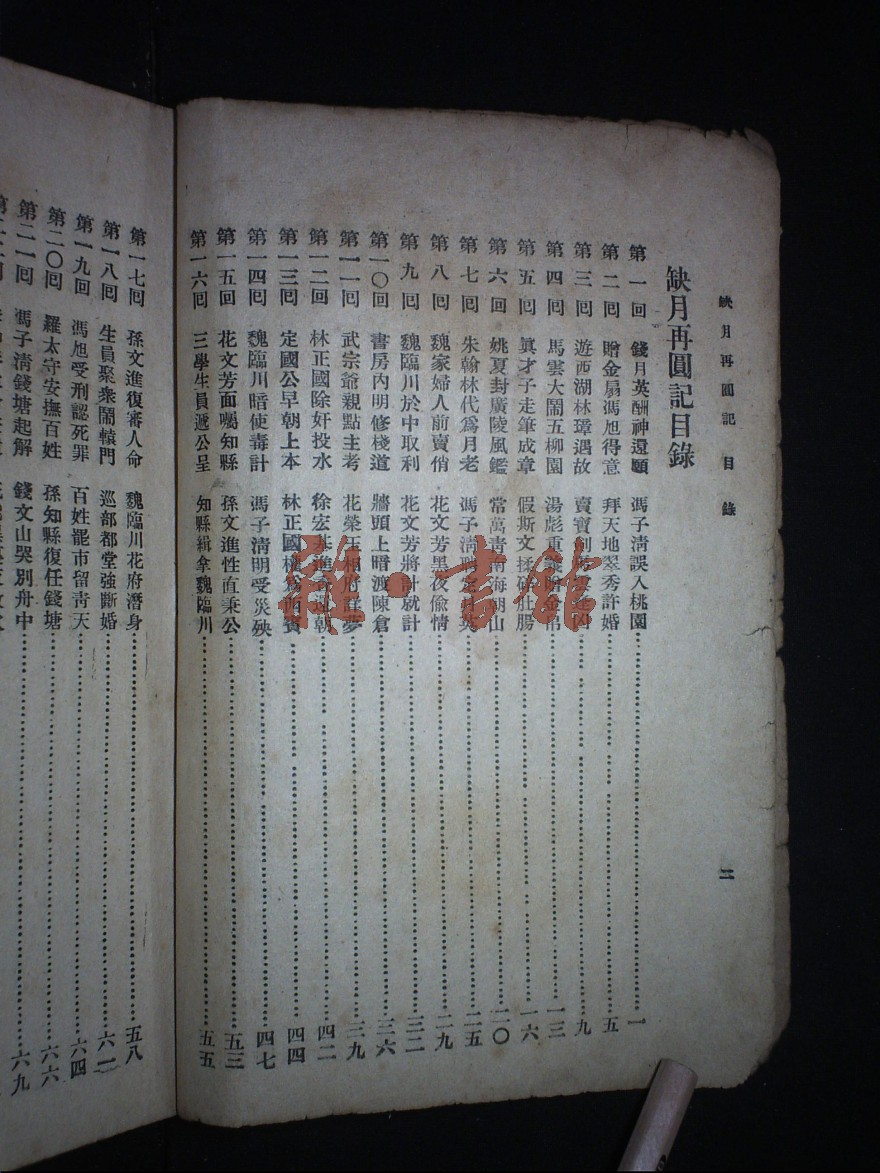 缺月再圓記目錄
二
缺月再圓記目錄
第一回 錢月英酬神還願 馮子清誤入桃園 一
第二回 贈金扇馮旭得意 拜天地翠秀許婚 五
第三回 遊西湖林璋遇故 賣寶劍 九
第四回 馬雲大鬧五柳園 湯彪重義贈金帛 一三
第五回 眞才子走筆成章 假斯文揉碎肚腸 一六
第六回 姚夏封廣陵風鑑 常萬青南海朝山 二〇
第七回 朱翰林代爲月老 馮子清聘定月英 二五
第八回 魏家婦人前賣俏 花文芳黑夜偸情 二九
第九回 魏臨川於中取利 花文芳將計就計 三二
第一〇回 書房內明修棧道 牆頭上暗渡陳倉 三六
第一一回 武宗爺親點主考 花榮玉相府詳夢 三九
第一二回 林正國除奸投水 徐宏基進京還朝 四二
第一三回 定國公早朝上本 林正國權爲西賓 四四
第一四回 魏臨川暗使毒計 馮子清明受災殃 四七
第一五回 花文芳面囑知縣 孫文進性直秉公 五三
第一六回 三學生員遞公呈 知縣緝拿魏臨川 五五
第一七回 孫文進復審人命 魏臨川花府潛身 五八
第一八回 生員聚衆鬧轅門 巡部都堂強斷婚 六一
第一九回 馮旭受刑認死罪 百姓罷市留靑天 六四
第二〇回 羅太守安撫百姓 孫知縣復任錢塘 六六
第二一回 馮子清錢塘起解 錢文山哭別舟中 六九
雅·書館